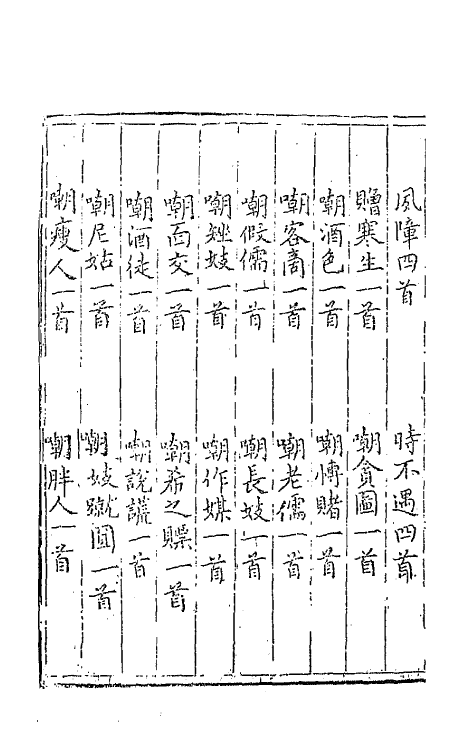 風障四首　時不遇四首
贈寒生一首　嘲貪圖一首
嘲酒色一首　嘲愽賭一首
嘲客啇一首　嘲老儒一首
嘲假儒一首　嘲長妓一首
嘲矬妓一首　嘲作媒一首
嘲面交一首　嘲希之驃一首
嘲酒徒一首　嘲說謊一首
嘲尼姑一首　嘲妓蹴圓一首
嘲瘦人一首　嘲胖人一首